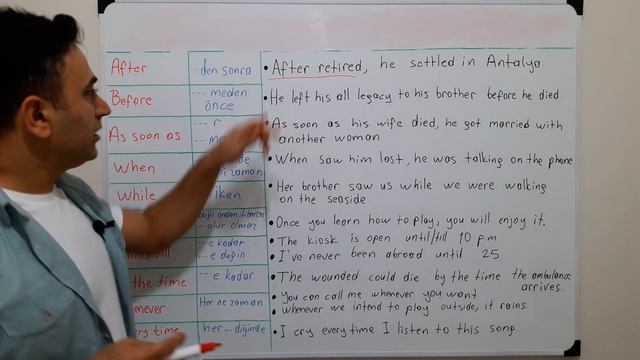 After
...den sonra
• After retired, he settled in Antalya
Before
...meden
önce
• He left his all legacy to his brother before he died.
As soon as
... r
• As soon as his wife died, he got married with
another woman
When
zaman
• When saw him last, he was talking on the phone
While
iken
• Her brother saw us while we were walking
on the seaside
olur olmaz
• Once you learn how to play, you will enjoy it.
...e kadar
...e değin
• The kiosk is open until/till 10 pm
• I've never been abroad until 25
the time
...e kadar
• The wounded could die by the time the ambulance
arrives.
Her ne zaman
• You can call me whenever you want
• Whenever we intend to play outside, it rains.
time
her--diğinde
• I cry every time I listen to this song